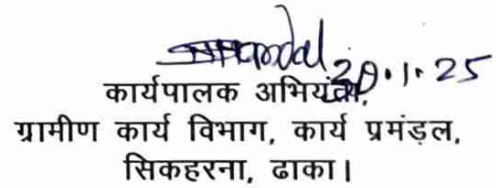 20.1.25
कार्यपालक अभियंता,
ग्रामीण कार्य विभाग, कार्य प्रमंड़ल,
सिकहरना, ढाका।